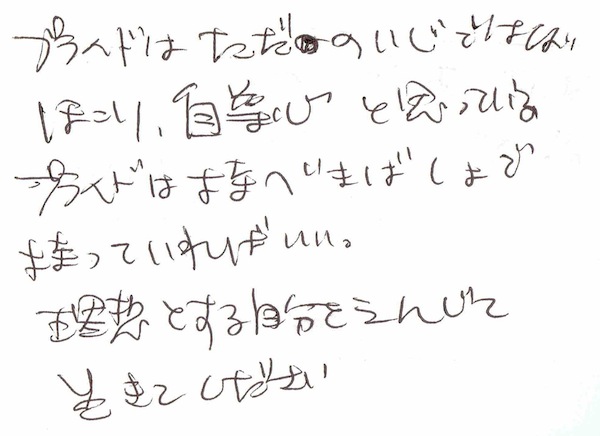 プライドは ただのいじではない
ほこり、自尊心 と思っている
プライドは 持べきばしょで
持っていればいい。
理想とする自分をえんじて
生きて